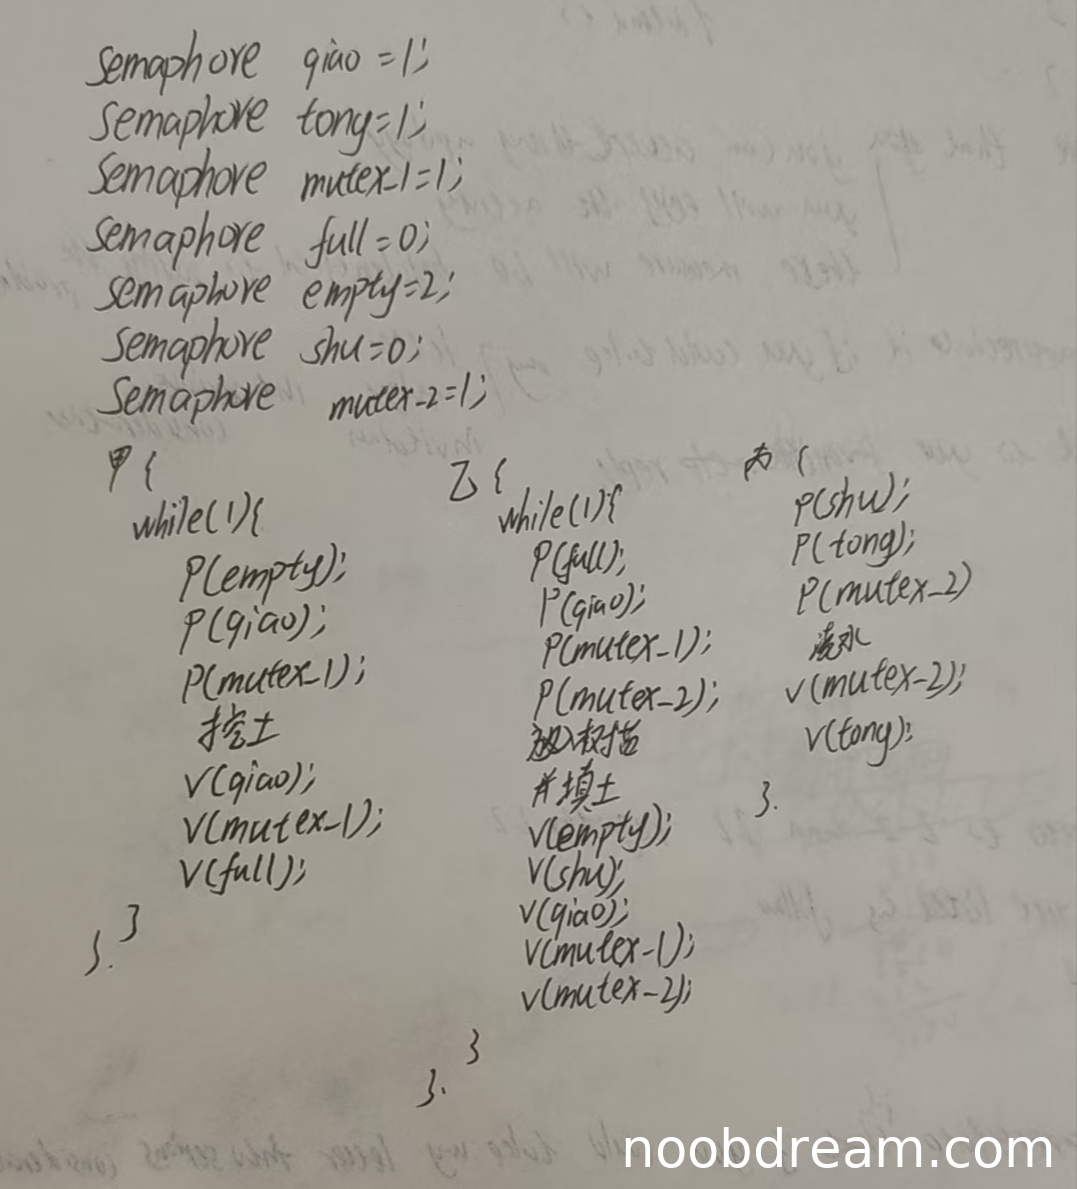 Semaphore qiao =1;
Semaphore tong=1;
Semaphore mutex-1=1;
Semaphore full=0;
Semaphore empty=2;
Semaphore shu=0;
Semaphore mutex-2=1;
甲{
while(1){
P(empty);
P(qiao);
P(mutex-1);
挖土
V(qiao);
V(mutex-1);
V(full);
}
}.
乙{
while(1){
P(full);
P(qiao);
P(mutex-1);
P(mutex-2);
放入树苗
并填土
V(empty);
V(shu);
V(qiao);
V(mutex-1);
V(mutex-2);
}
}.
丙{
P(shu);
P(tong);
P(mutex-2)
浇水
V(mutex-2);
V(tong);
}.
noobdream.com